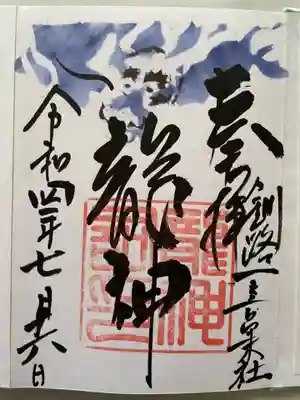 奉拝
釧路一之宮末社
龍神
令和四年七月廿六日